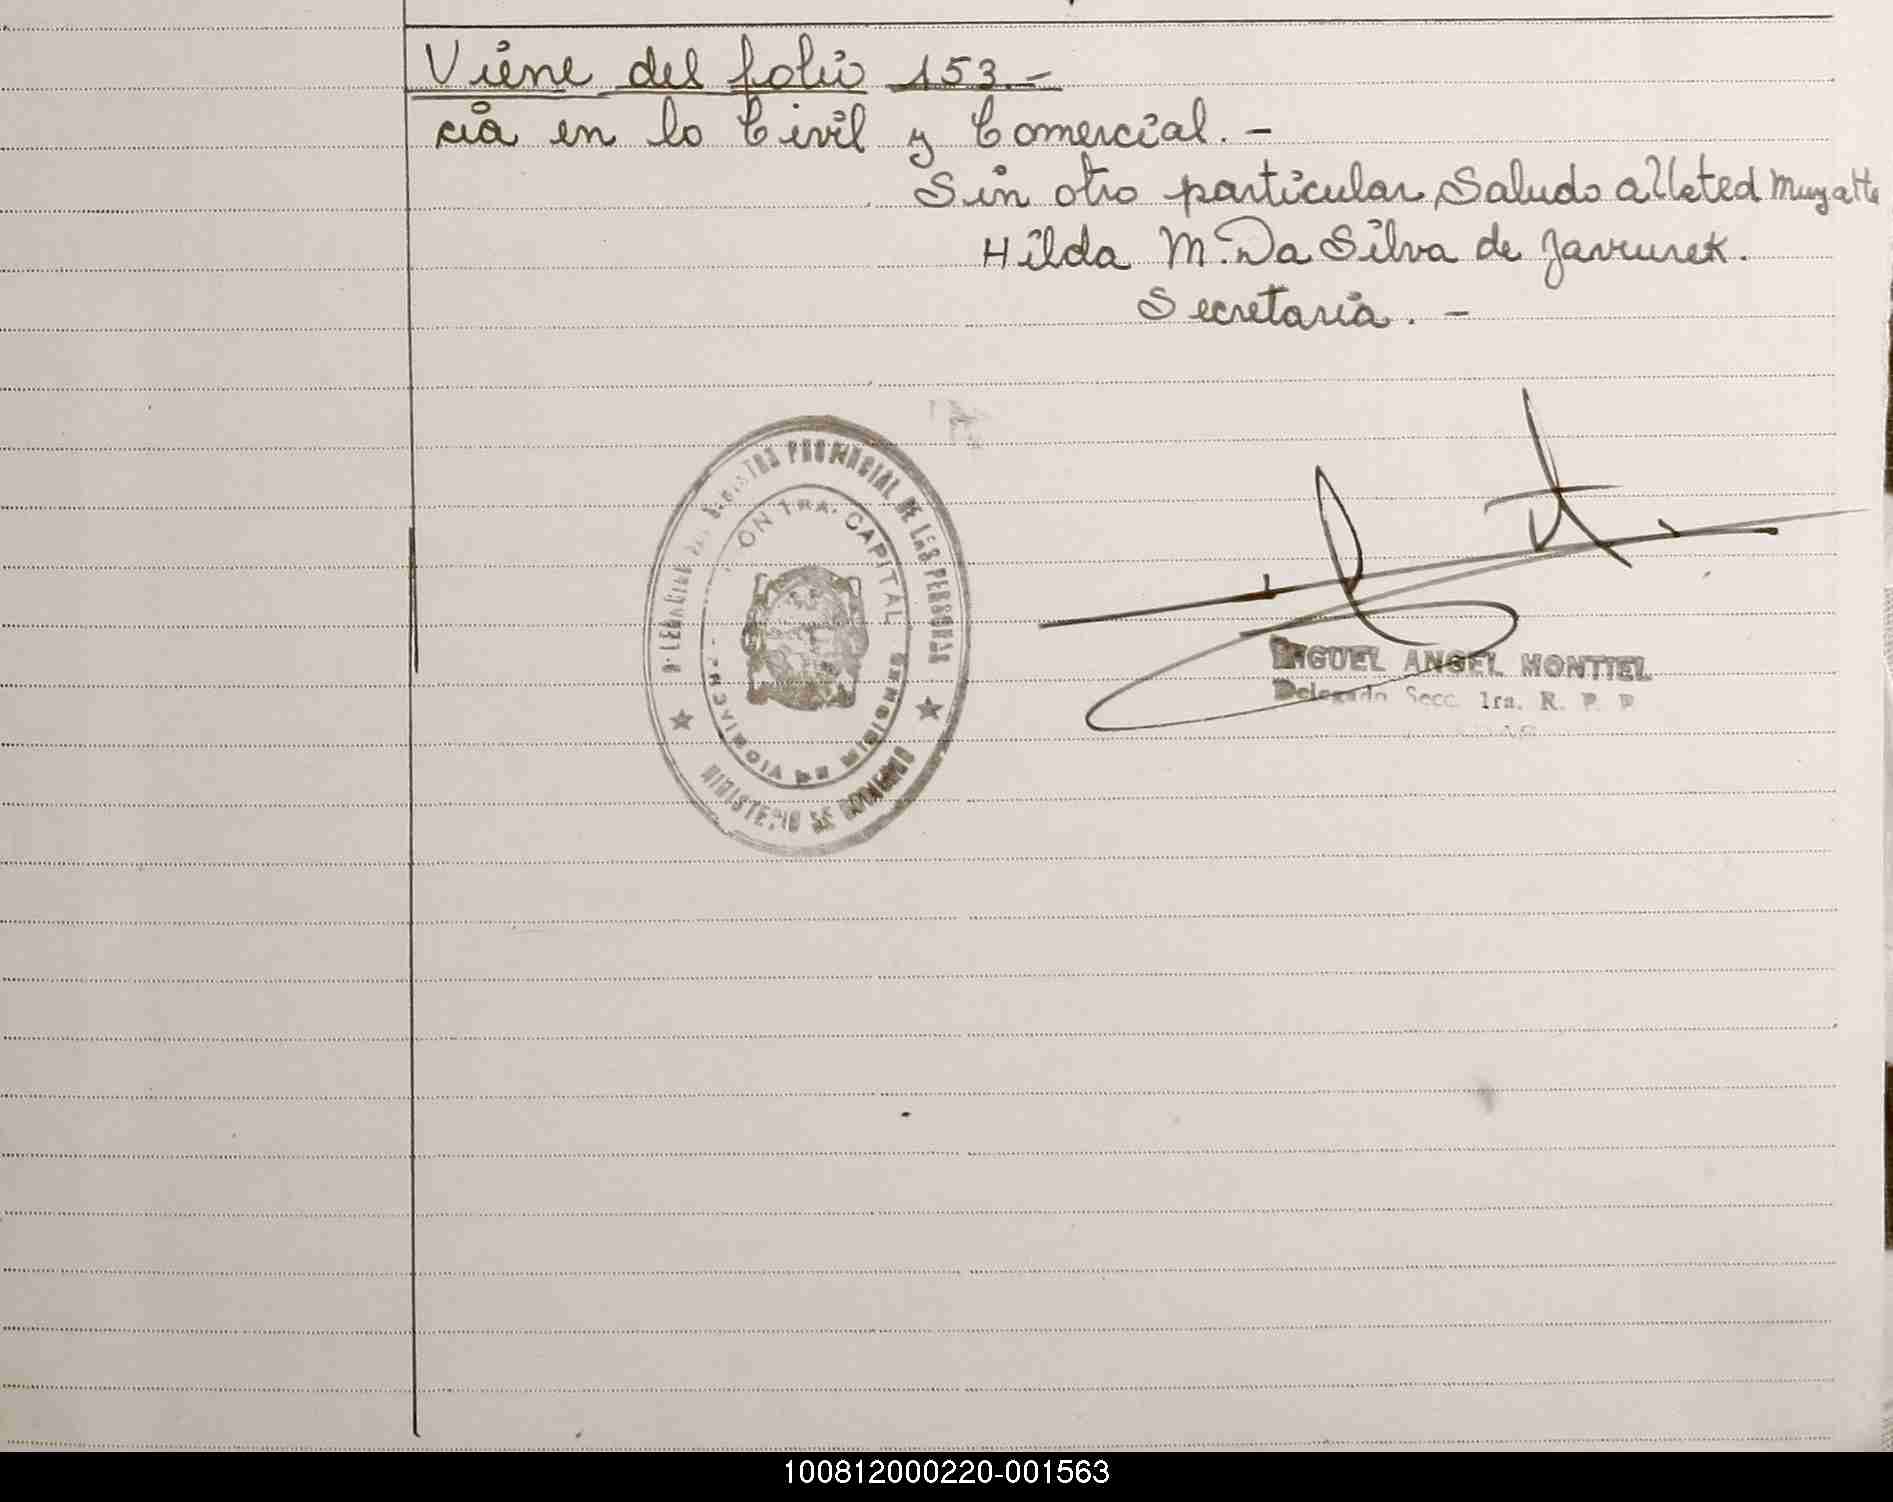 Viene del folio 153.-
cia en lo Civil y Comercial.-
Sin otro particular Saludo a Usted muy atte
Hilda M. Da Silva de Javrurek.
Secretaria.-
REGISTRO PROVINCIAL DE LAS PERSONAS
CAPITAL
PROVINCIA DE MISIONES
MINISTERIO DE GOBIERNO
MIGUEL ANGEL MONTIEL
Delegado Secc. 1ra. R. P. P
100812000220-001563